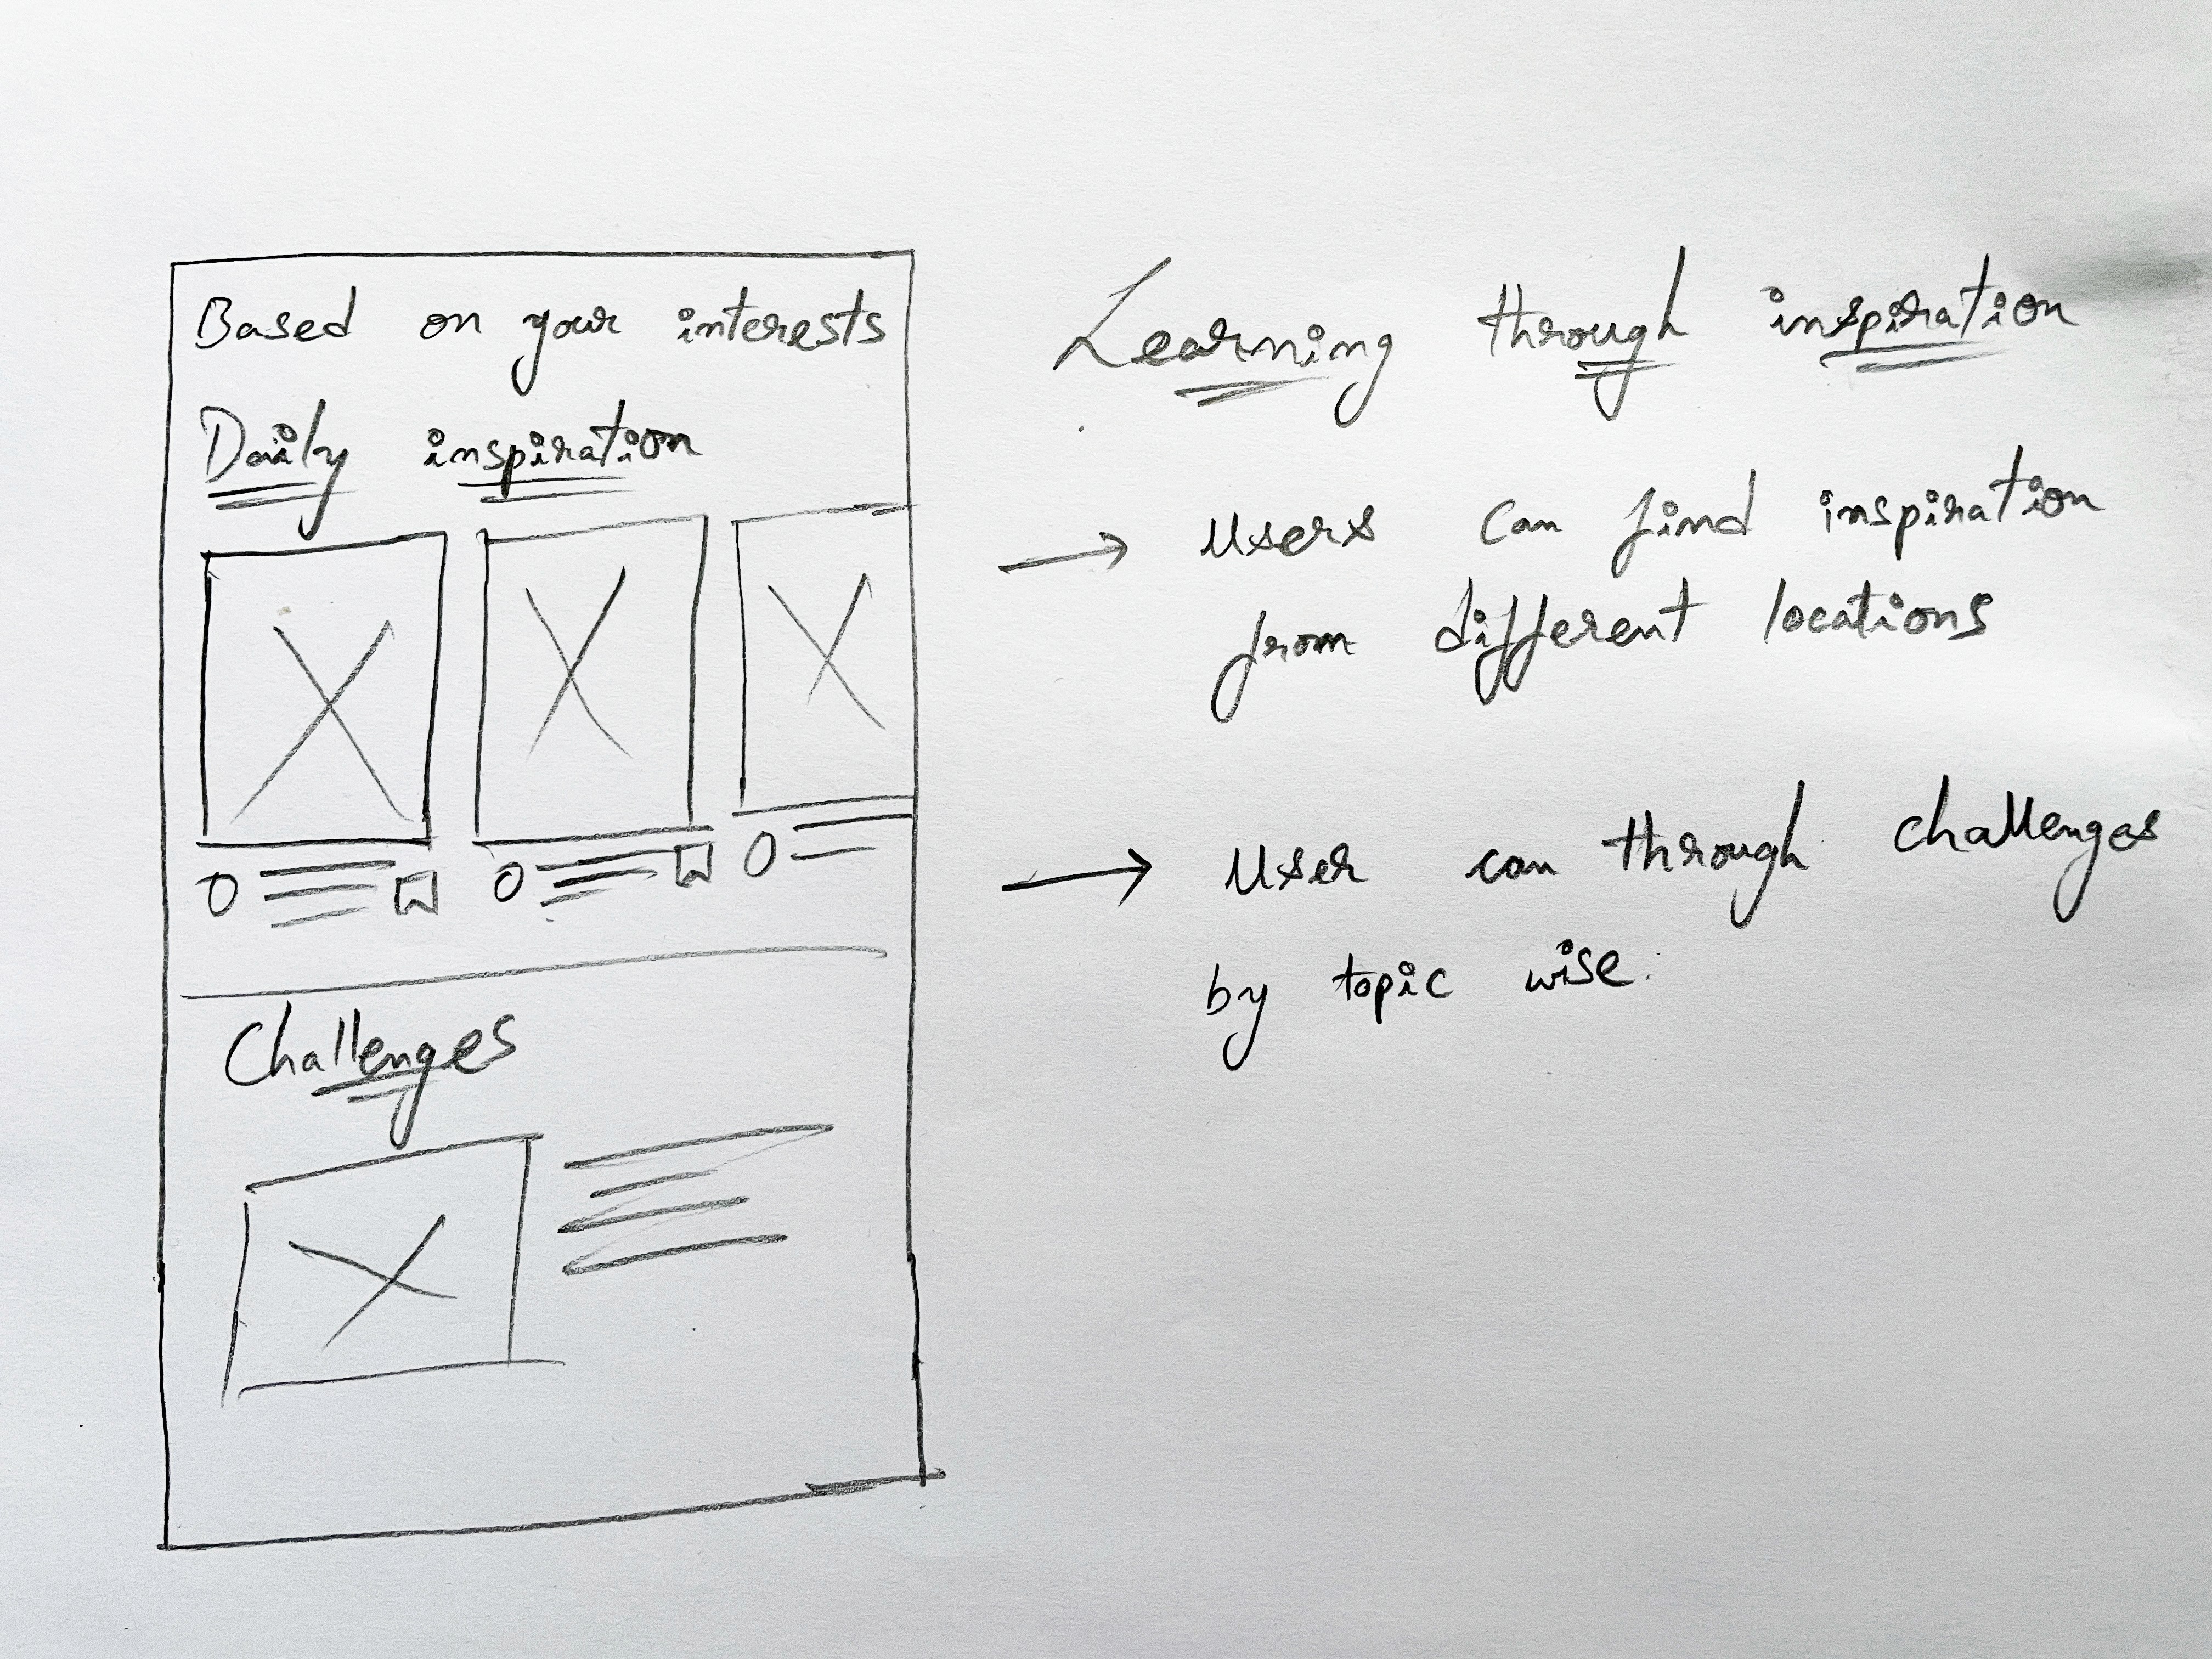 Based on your interests
Daily inspiration
Challenges
Learning through inspiration
→ Users can find inspiration
from different locations
→ User can through challenges
by topic wise.